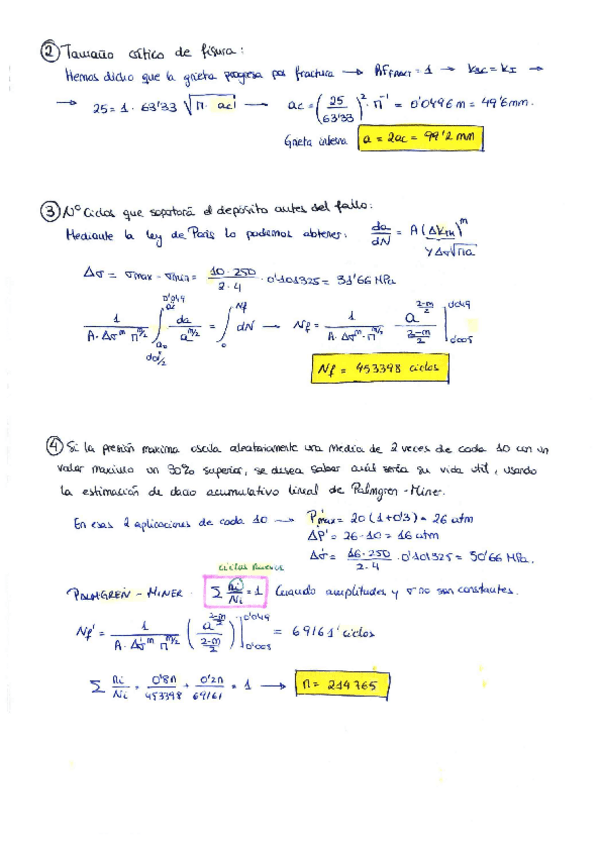 ② Tamaño crítico de fisura:
Hemos dicho que la grieta progresa por fractura → AFFRACT = 1 → KIC = KI →
→ 25 = 1 · 63'33 √(π · ac) → ac = (25/63'33)² · π⁻¹ = 0'0496 m = 49'6 mm.
Grieta interna a = 2ac = 99'2 mm
③ Nº Ciclos que soportará el depósito antes del fallo:
Mediante la ley de Paris lo podemos obtener: da/dN = A (ΔKIH)^m
YΔσ√πa
Δσ = σmax - σmin = (10 · 250)/(2 · 4) · 0'101325 = 31'66 MPa
1/(A · Δσ^m π^(m/2)) ∫ da/a^(m/2) = ∫₀^Nf dN → Nf = 1/(A · Δσ^m · π^(m/2)) · a^((2-m)/2)/((2-m)/2) |0'049 0'005
Nf = 453398 ciclos
④ Si la presión maxima oscila aleatoriamente una media de 2 veces de cada 10 con un
valor maximo un 30% superior, se desea saber cuál sería su vida util, usando
la estimación de daño acumulativo lineal de Palmgren-Miner.
En esas 2 aplicaciones de cada 10 → P'max = 20 (1+0'3) = 26 atm
ΔP' = 26-10 = 16 atm
Δσ' = (16 · 250)/(2 · 4) · 0'101325 = 50'66 MPa.
PALMGREN - MINER Σ ni/Ni = 1 Cuando amplitudes y σ no son constantes.
Nf' = 1/(A · Δσ^m π^(m/2)) (a^((2-m)/2)/((2-m)/2)) |0'049 0'005 = 69161 ciclos
Σ ni/Ni = 0'8n/453398 + 0'2n/69161 = 1 → n = 214765